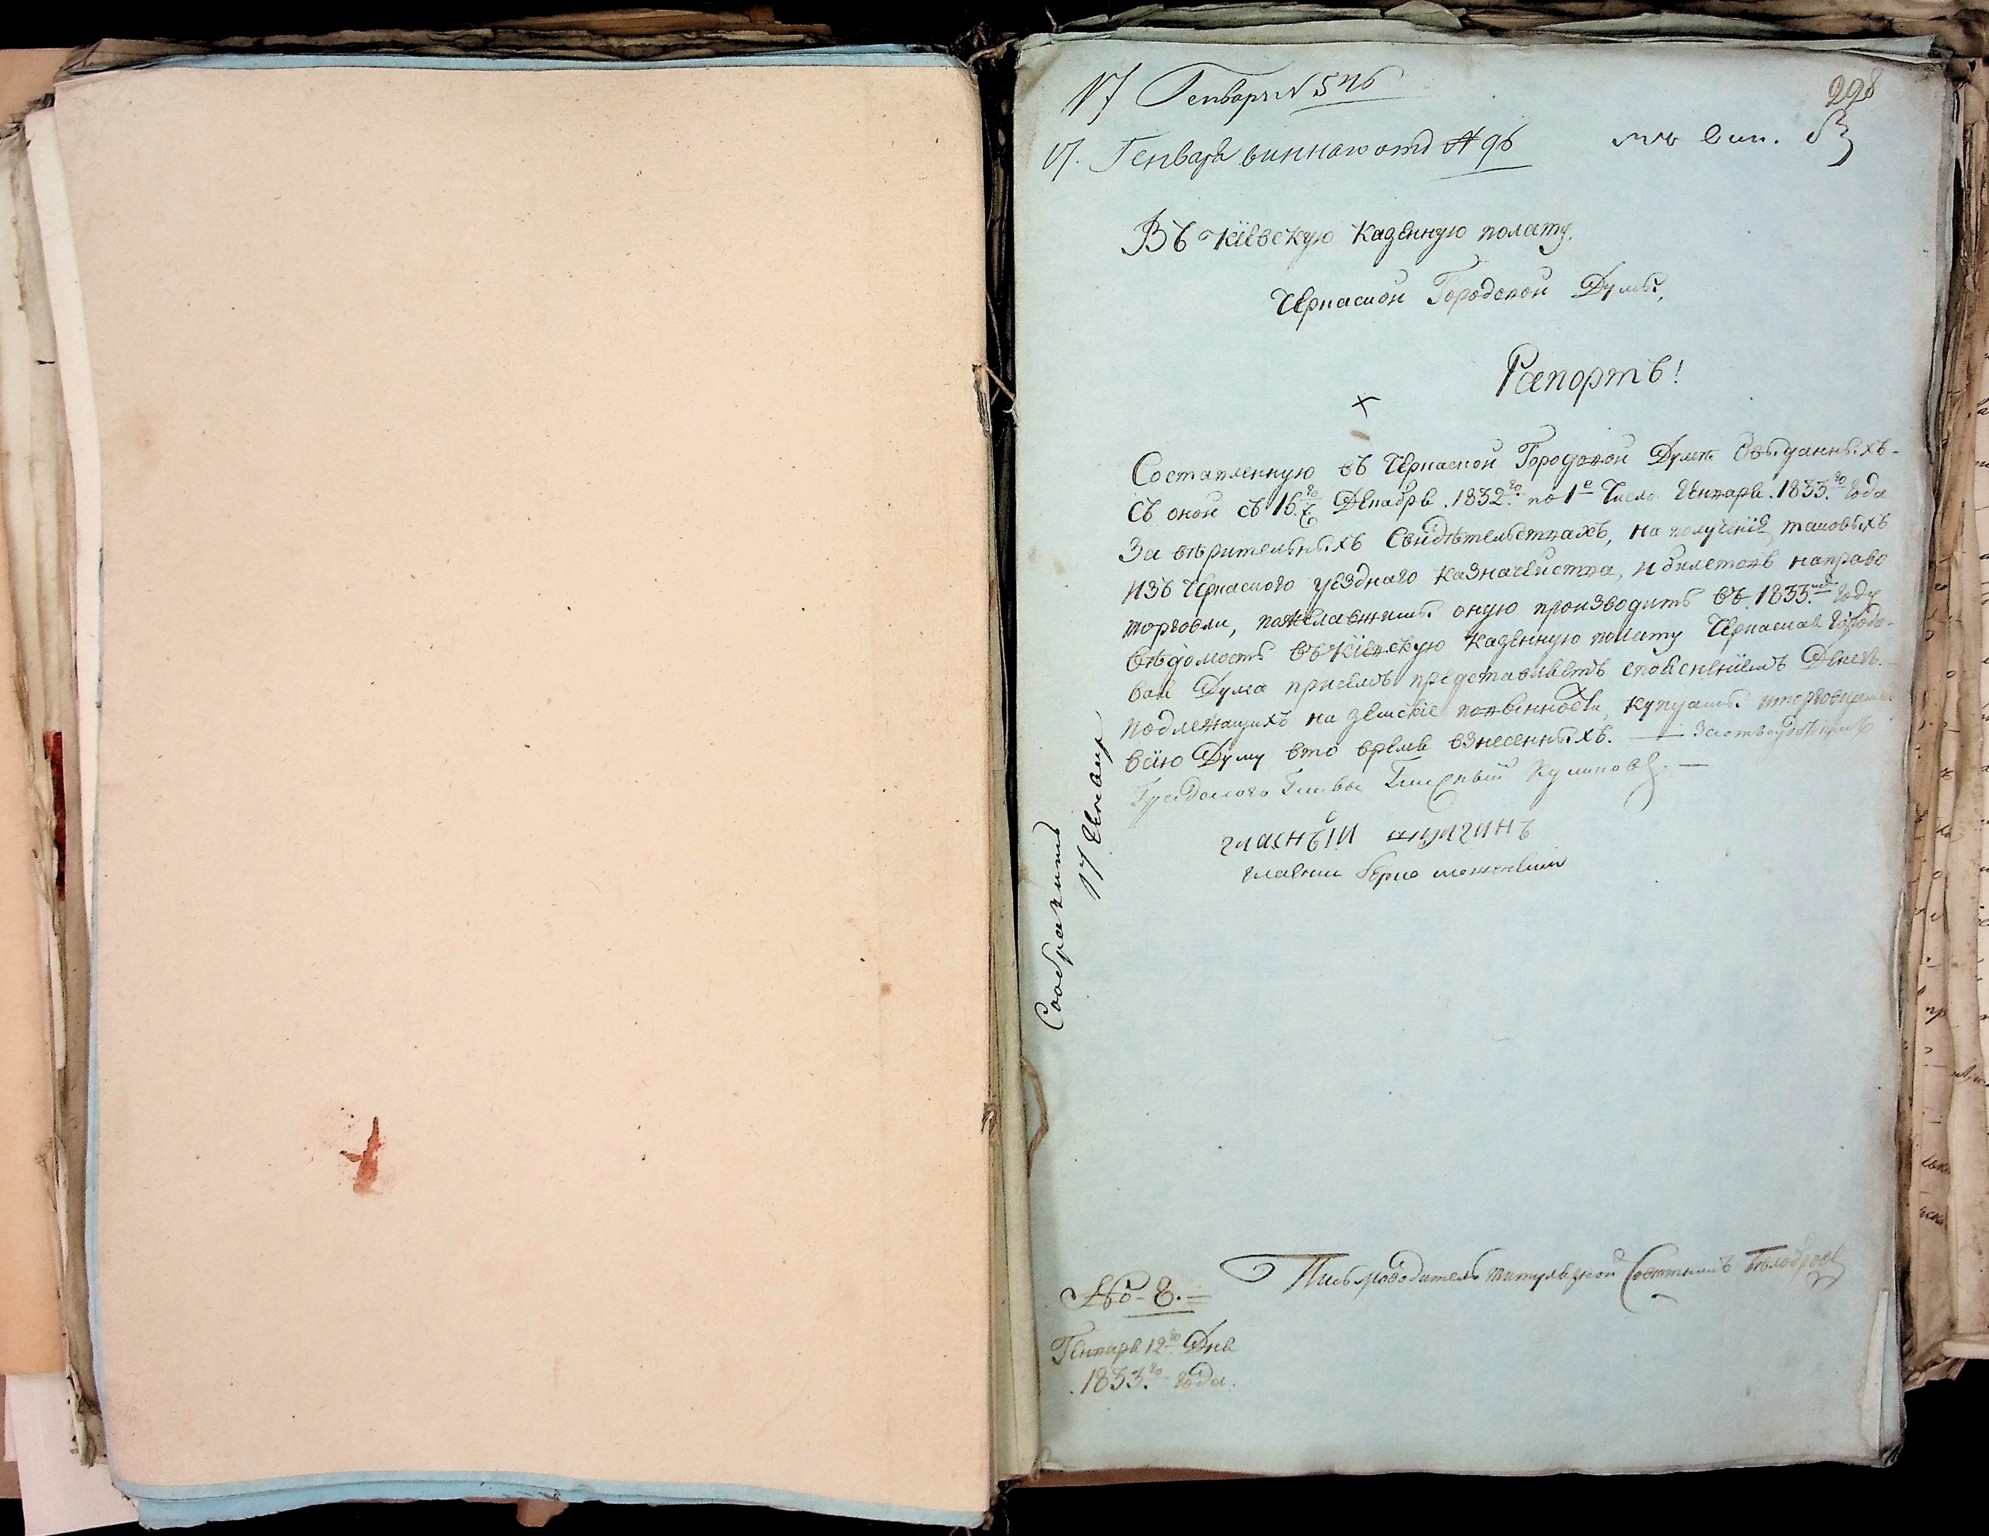 298
17 Генваря N 576
17. Генваря виннаго отд № 96
Въ Кіевскую Казенную полату.
Черкаской Городской Думы,
Рапортъ!
Составленную въ Черкаской Городской Думѣ Объ выданныхъ
съ оной съ 16.го Декабря 1832.го по 1е Число Генваря 1833.го Года
За вѣрительныхъ Свидѣтельствахъ, на получение таковыхъ
изъ Черкаского уезднаго Казначейства, и билетовъ направо
торговли, пожелавшимъ оную производить въ 1833.мъ Году
вѣдомость въ Кіевскую Казенную полату Черкаская Городо-
вая Дума присемъ представляетъ споясненіемъ Денегъ
подлежащихъ на земскіе повѣнности, купцамы
всію Думу вто время взнесенныхъ. —
Градского Главы Гласный Куликовъ. —
гласныи
Сообразить
17 Генвар
Письмоводитель титулярной Советникъ
№ 8.
Генваря 12го Дня
1833.го Года.